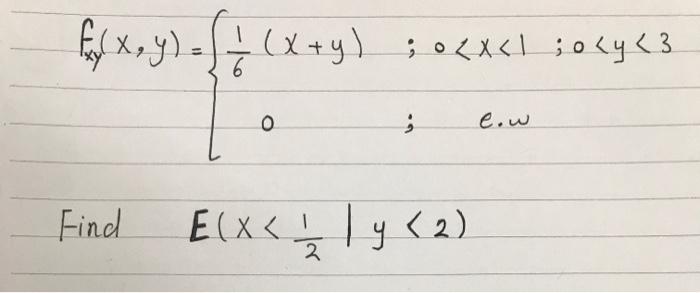 f_xy(x,y) = { 1/6 (x+y) ; 0<x<1 ; 0<y<3
0 ; e.w
Find E(X < 1/2 | y < 2)